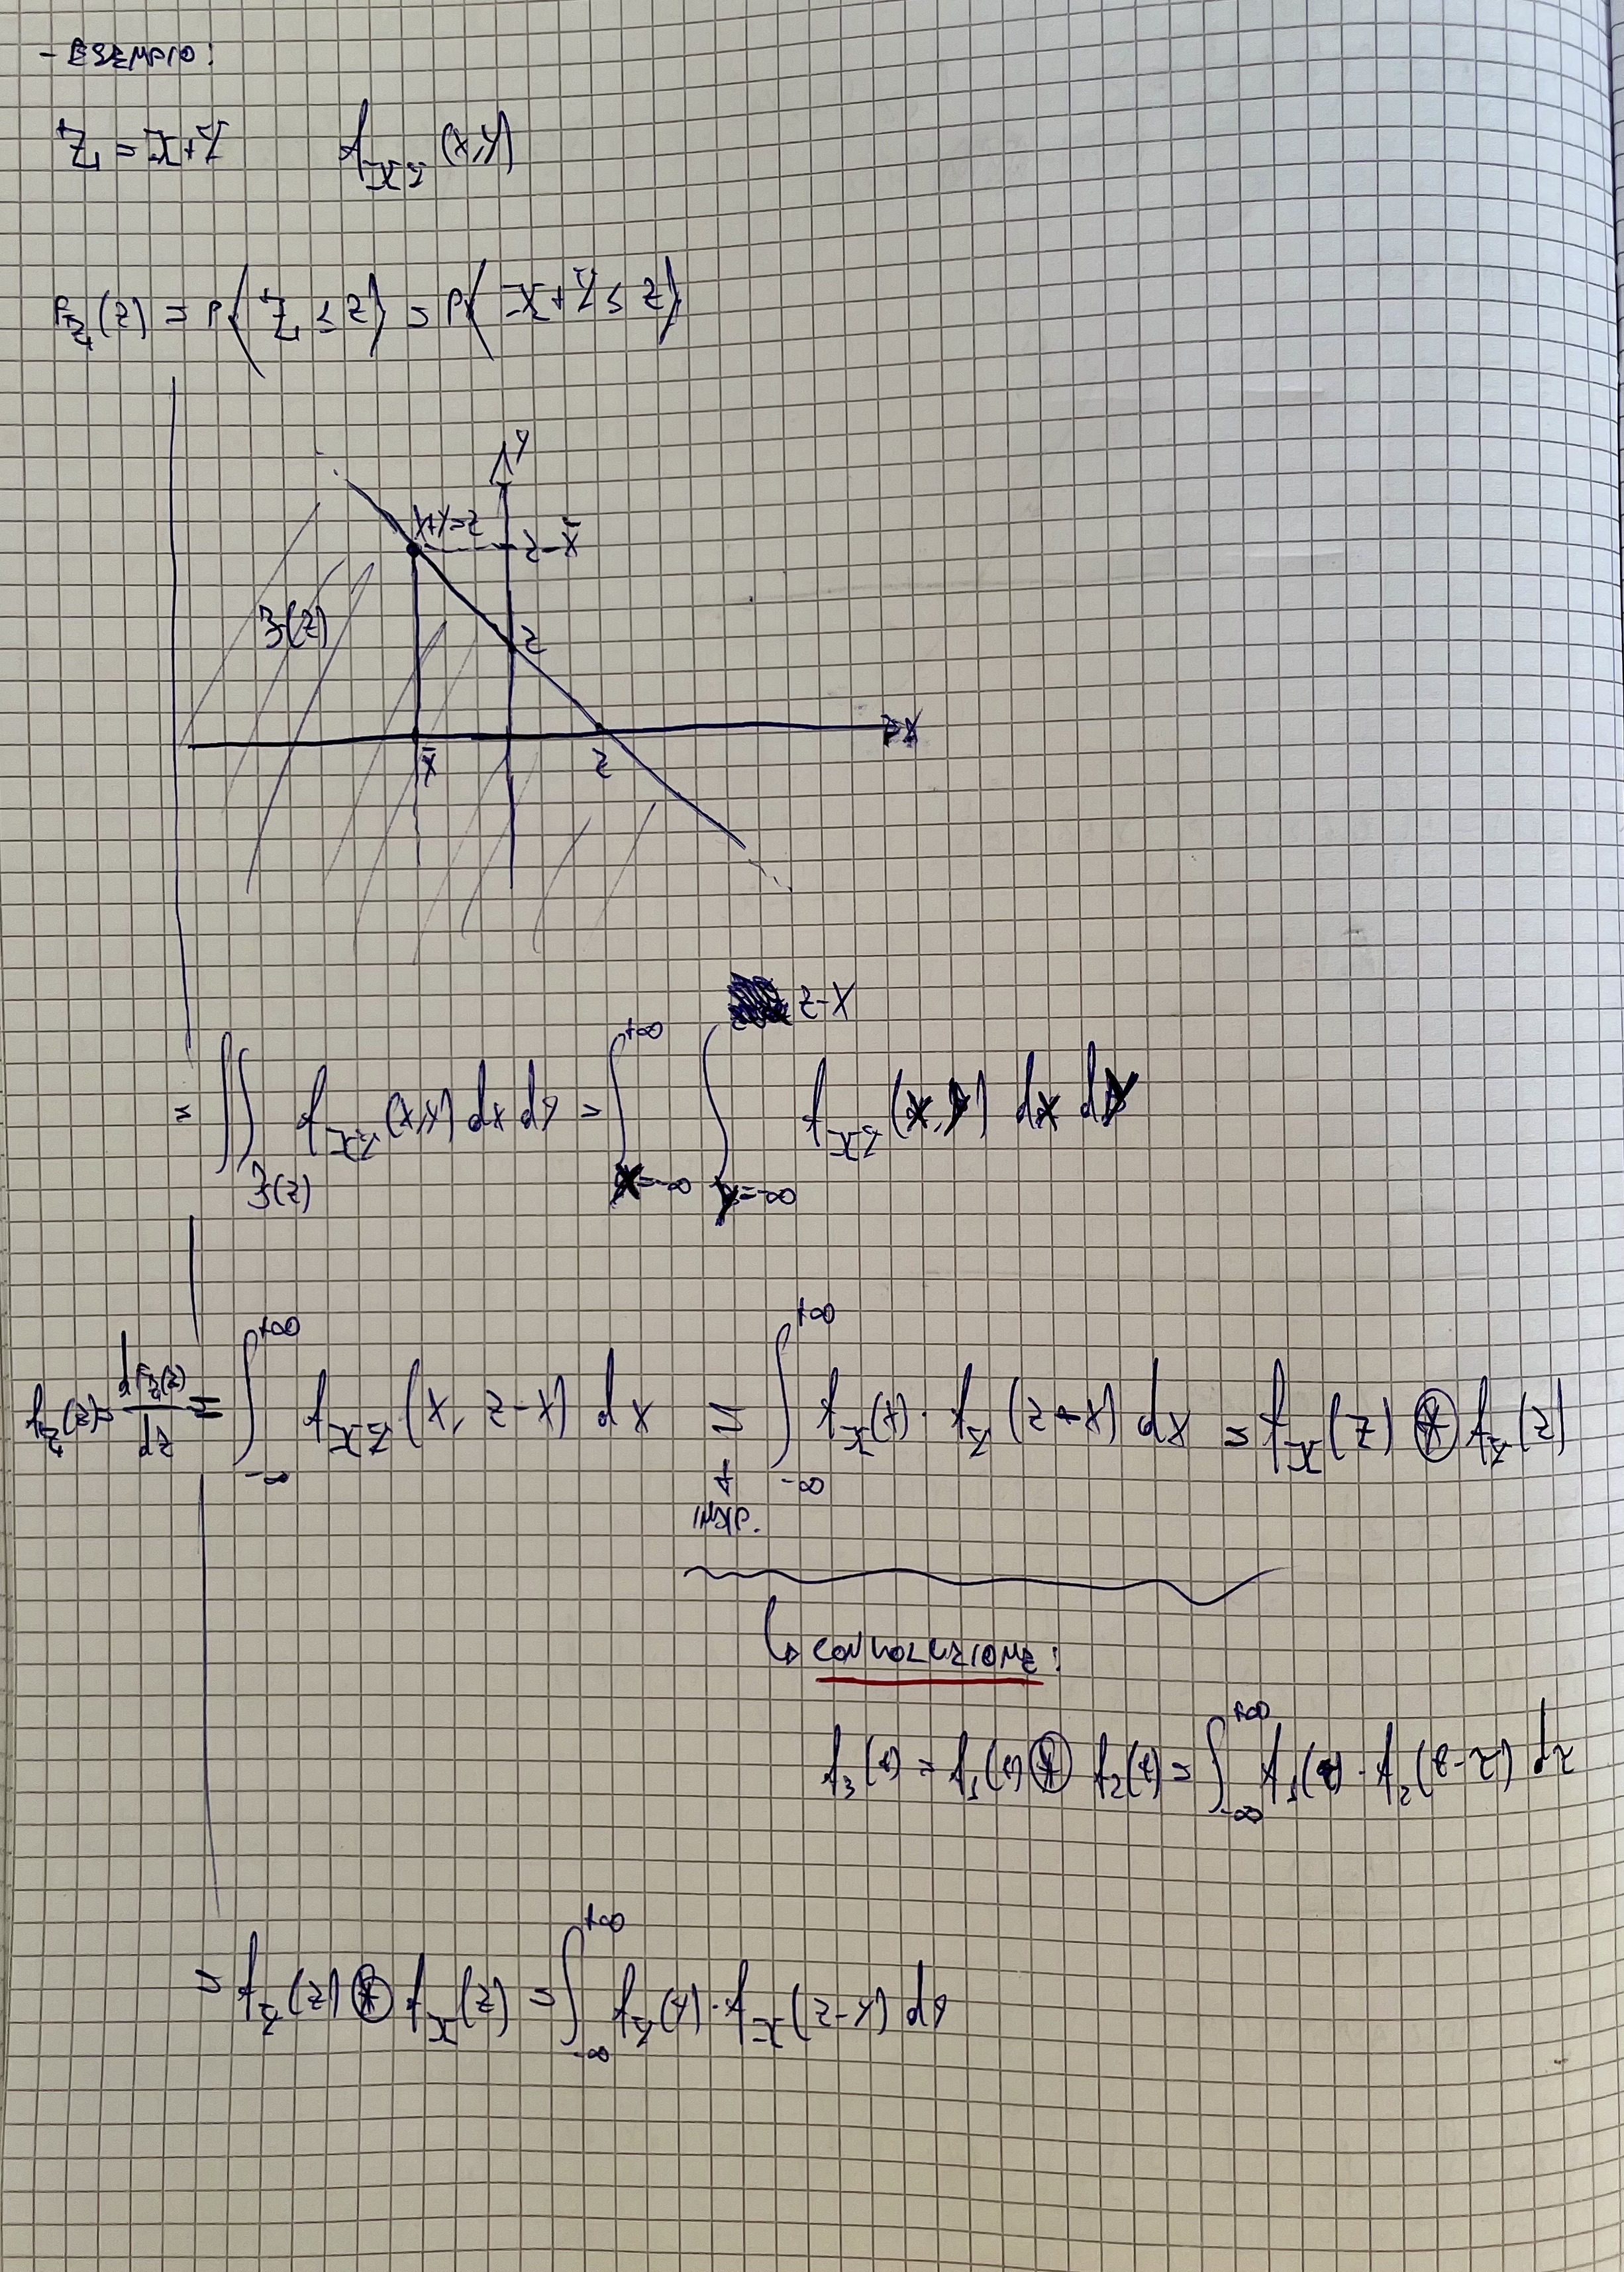 - ESEMPIO:
Z = X+Y    f_XY (x,y)
F_Z (z) = P{ Z ≤ z } = P{ X+Y ≤ z }
y
x+y=z
z-x̄
z
x
x̄
z
= ∬_{(z)} f_XY (x,y) dx dy = ∫_{x=-∞}^{+∞} ∫_{y=-∞}^{z-x} f_XY (x,y) dx dy
f_Z (z) = dF_Z(z)/dz = ∫_{-∞}^{+∞} f_XY (x, z-x) dx = ∫_{-∞}^{+∞} f_X (x) · f_Y (z-x) dx = f_X (z) ⊛ f_Y (z)
↑
INDIP.
↳ CONVOLUZIONE:
f_3 (t) = f_1 (t) ⊛ f_2 (t) = ∫_{-∞}^{+∞} f_1 (τ) · f_2 (t-τ) dτ
= f_Y (z) ⊛ f_X (z) = ∫_{-∞}^{+∞} f_Y (y) · f_X (z-y) dy